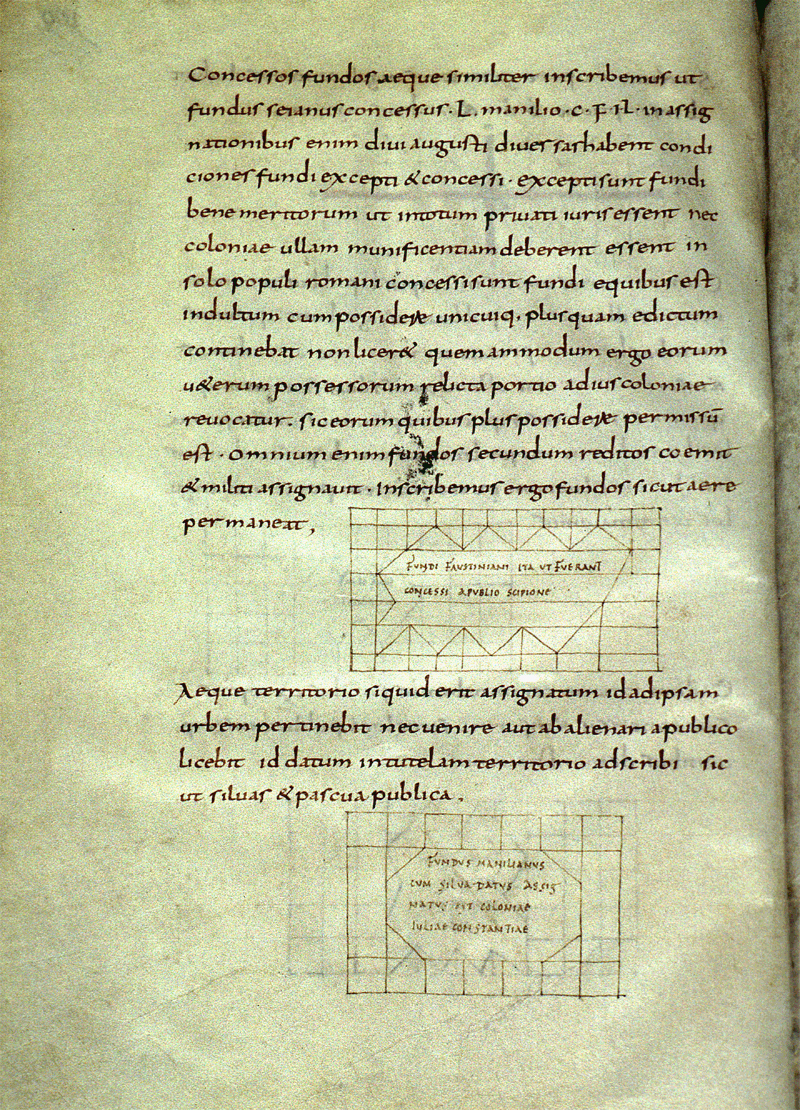 Concessos fundos aeque similiter inscribemus ut
fundus seianus concessus · L · manilio · c · F · FIL · in assig
nationibus enim diui augusti diuersas habent condi
ciones fundi excepti & concessi · excepti sunt fundi
bene meritorum ut intotum priuati iuris essent nec
coloniae ullam munificentiam deberent essent in
solo populi romani concessi sunt fundi equibus est
indultum cum possidere unicuiq. plus quam edictum
continebat non licer& quem ammodum ergo eorum
u&erum possessorum relicta portio adius coloniae
reuocatur. sic eorum quibus plus possidere permissū
est · omnium enim fundos secundum reditos coemit
& militi assignauit · Inscribemus ergo fundos sicut aere
permaneat,
FUNDI FAUSTINIANI ITA UT FUERANT
CONCESSI APUBLIO SCIPIONE
Aeque territorio siquid erit assignatum id adipsam
urbem pertinebit nec uenire aut abalienari a publico
licebit id datum in tutelam territorio adscribi sic
ut siluas & pascua publica.
FUNDUS MANILIANUS
CUM SILUA DATUS ASSIG
NATUS EST COLONIAE
IULIAE CONSTANTIAE